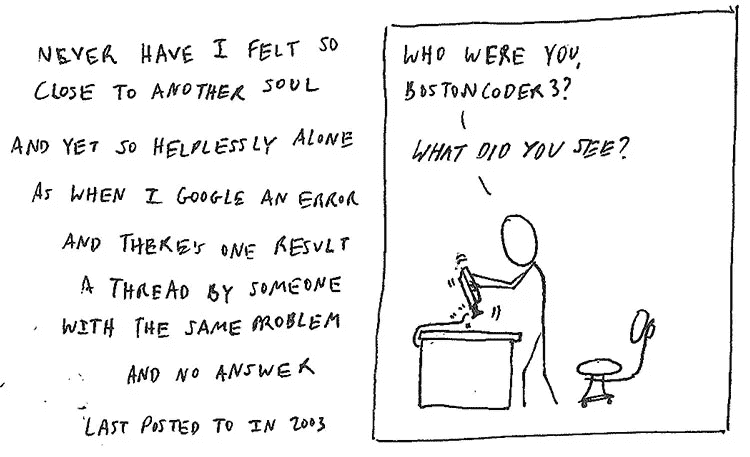 NEVER HAVE I FELT SO
CLOSE TO ANOTHER SOUL
AND YET SO HELPLESSLY ALONE
AS WHEN I GOOGLE AN ERROR
AND THERE'S ONE RESULT
A THREAD BY SOMEONE
WITH THE SAME PROBLEM
AND NO ANSWER
LAST POSTED TO IN 2003
WHO WERE YOU,
BOSTONCODER3?
WHAT DID YOU SEE?